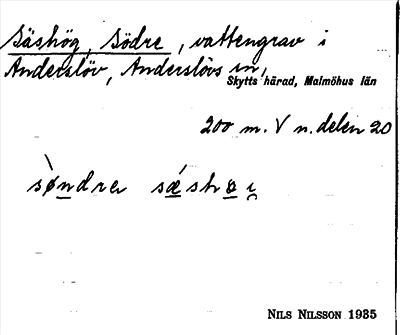 Säshög, Södre, vattengrav i
Anderslöv, Anderslövs sn,
Skytts härad, Malmöhus län
200 m. V n. delen 20
sø̀ndrə sǽshɑi̯
NILS NILSSON 1935